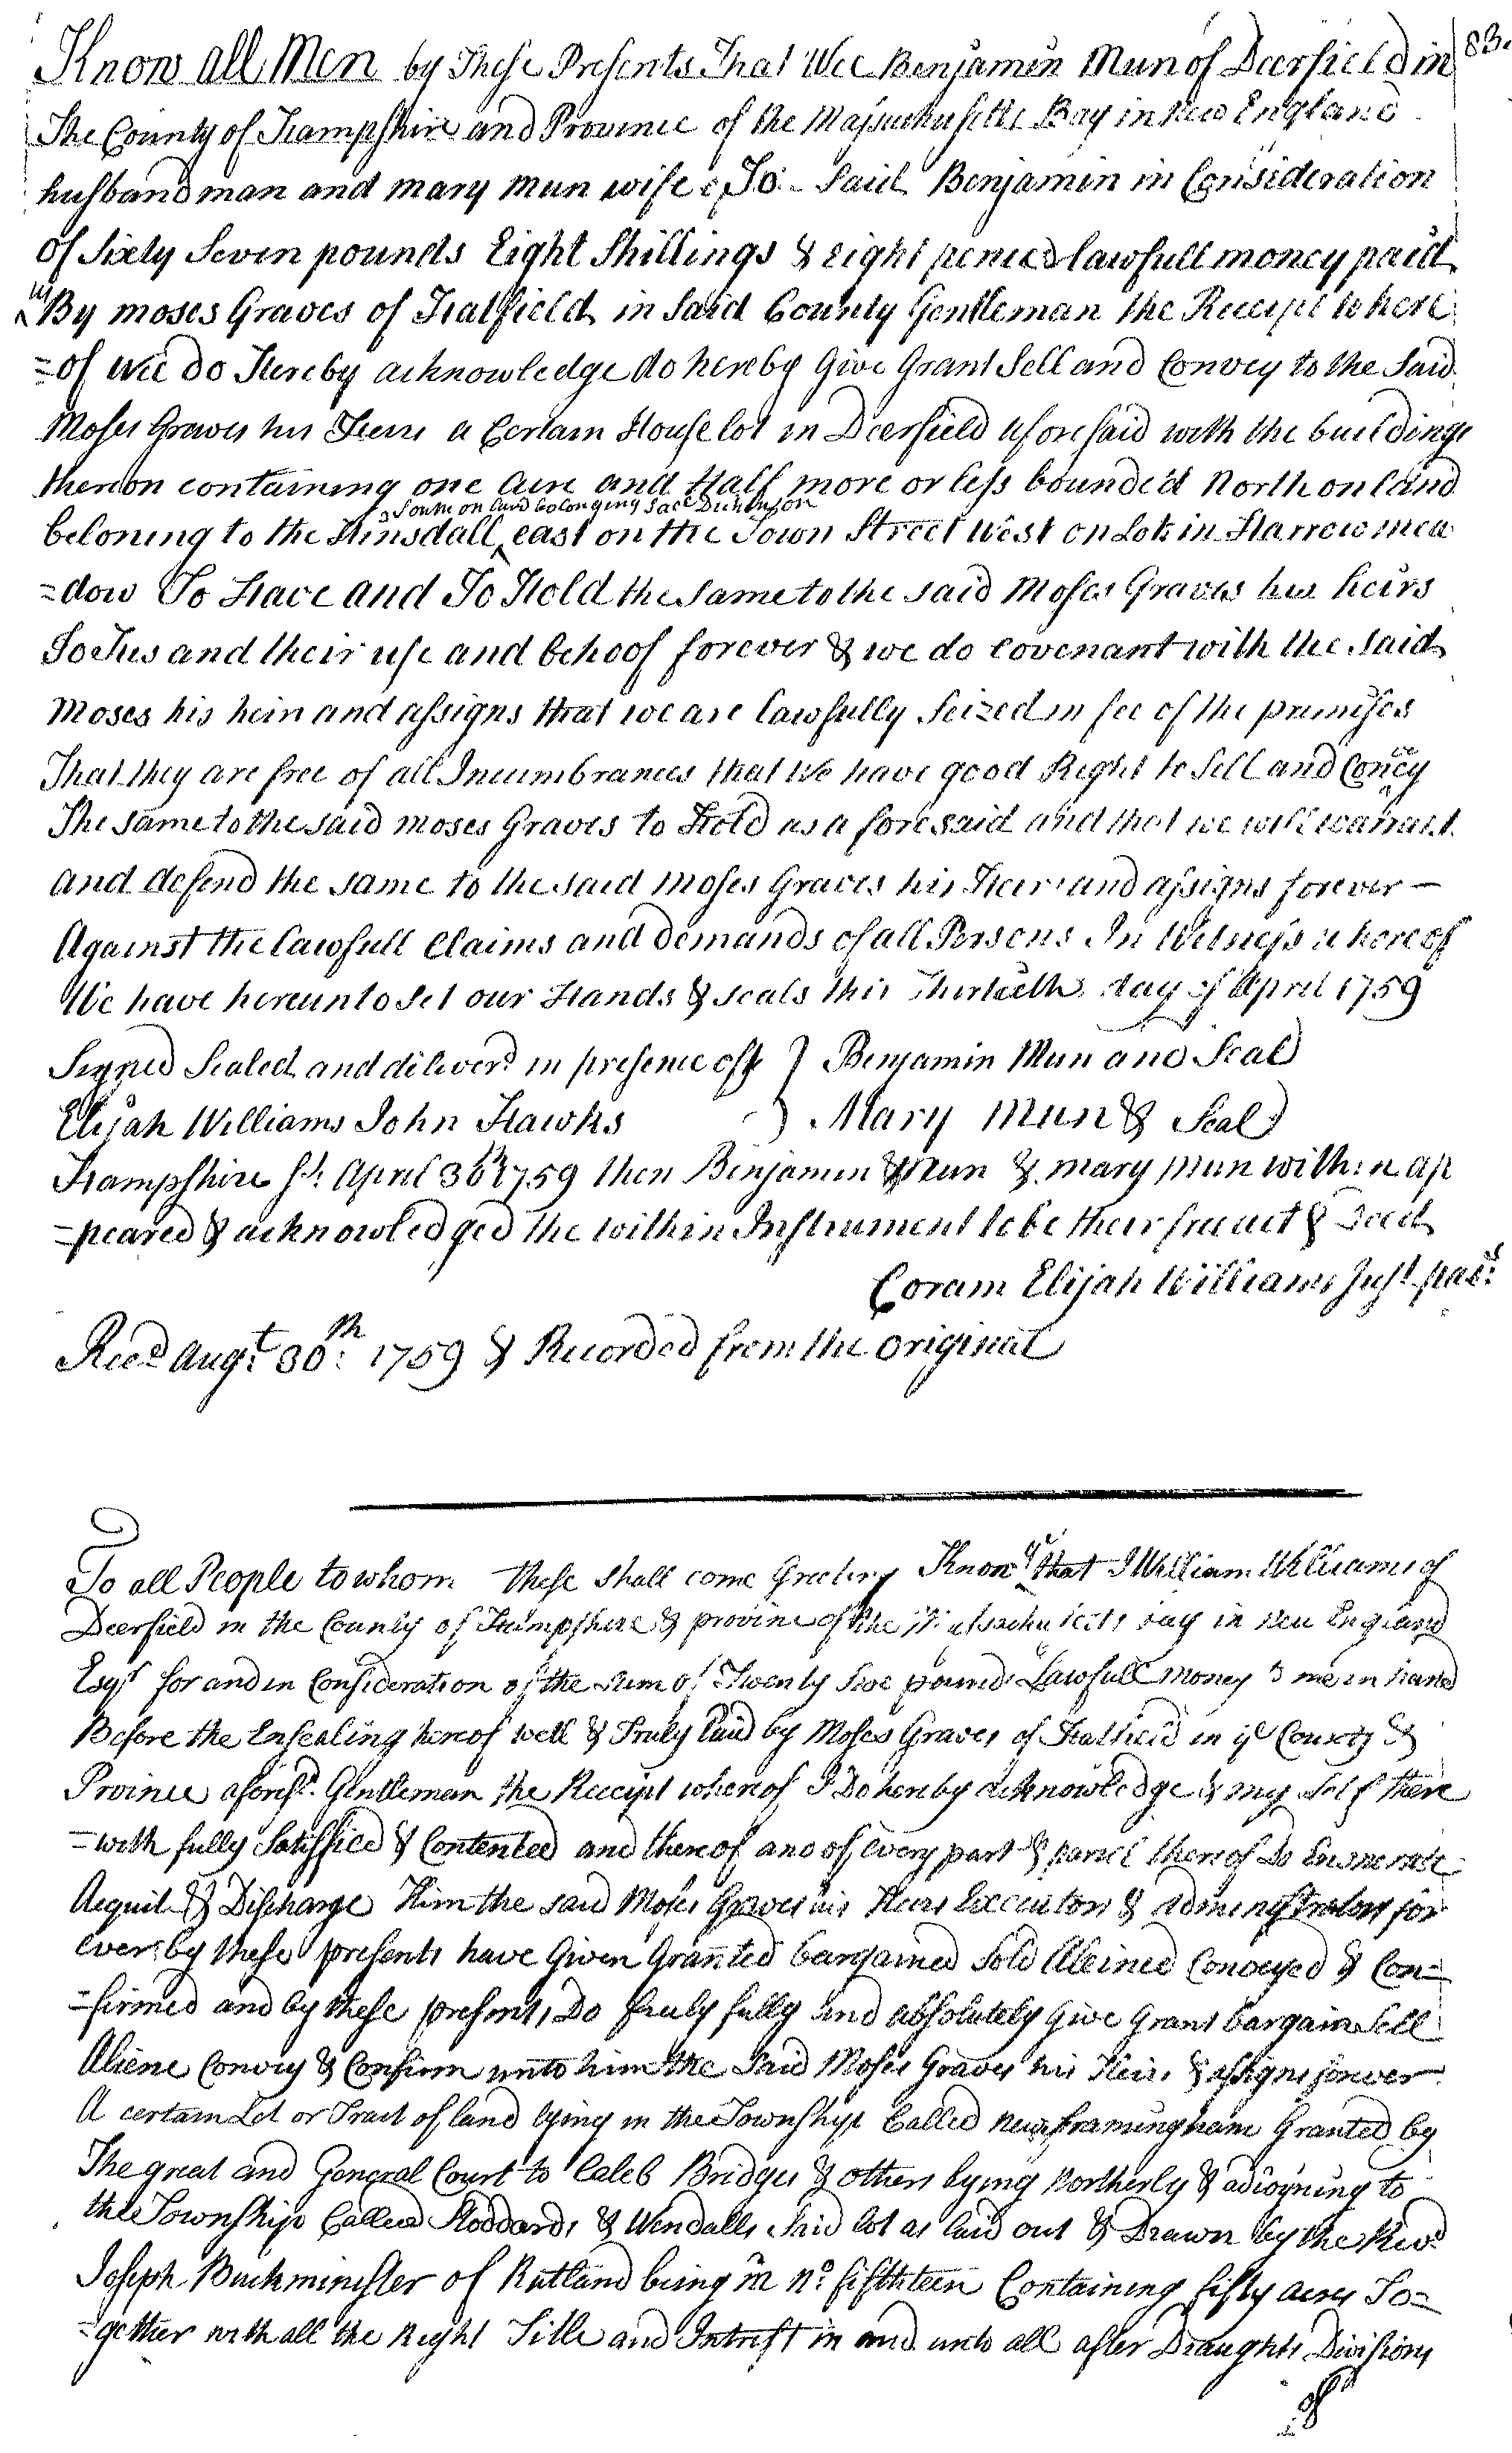 83.
Know all Men by These Presents That Wee Benjamin Mun of Deerfield in
The County of Hampshire and Province of the Massachusetts Bay in New England
husbandman and mary mun wife of To Said Benjamin in Consideration
of Sixty Seven pounds Eight Shillings & eight pence lawfull money paid
us By moses Graves of Hatfield in Said County Gentleman the Receipt where
=of we do Hereby acknowledge do hereby Give Grant Sell and Convey to the Said
Moses Graves his Heirs a Certain House lot in Deerfield aforesaid with the buildings
thereon containing one acre and Half more or less bounded North on land
South on land belonging Dickinson
beloning to the Hinsdall east on the Town Street West on Lots in Harrow mea
=dow To Have and To Hold the Same to the said Moses Graves his heirs
To His and their use and behoof forever & we do covenant with the Said
Moses his heirs and assigns that we are lawfully Seized in fee of the premises
That they are free of all Incumbrances that We have good Right to Sell and Convey
The Same to the said moses Graves to Hold as aforesaid and that we will warrant
and defend the same to the said Moses Graves his Heirs and assigns forever —
Against the lawfull Claims and demands of all Persons In Witness whereof
We have hereunto Set our Hands & seals this Thirtieth day of April 1759
Signed Sealed and deliverd in presence off } Benjamin Mun and Seal
Elijah Williams John Hawks } Mary Mun & Seal
Hampshire Ss: April 30th 1759 then Benjamin Mun & mary mun within ap
=peared & acknowledged the within Instrument to be their free act & Deed
Coram Elijah Williams Just. pacs.
Recd Augt. 30th: 1759 & Recorded from the original
To all People to whom these shall come Greeting Know ye that I William Williams of
Deerfield in the County of Hampshire & province of the Massachusetts bay in New England
Esqr for and in Consideration of the sum of Twenty five pounds Lawfull money to me in hand
Before the Ensealing hereof well & Truly Paid by Moses Graves of Hatfield in ye County &
Province aforesd. Gentleman the Receipt whereof I Do hereby acknowledge & my self there
=with fully Satisfied & Contented and thereof and of every part & parcel thereof Do Exonerate
Acquit & Discharge Him the said Moses Graves his Heirs Executors & Administrators for
ever by these presents have Given Granted bargained Sold Aleined Conveyed & Con=
=firmed and by these presents Do freely fully and absolutely Give Grant bargain Sell
Aliene Convey & Confirm unto him the Said Moses Graves his Heirs & assigns forever
A certain Lot or Tract of land lying in the Township Called new framingham Granted by
The great and General Court to Caleb Bridges & others lying Northerly & adioyning to
the Township Called Stoddards & Wendalls Said lot as laid out & Drawn by the Revd
Joseph Buckminster of Rutland being in No. fifthteen Containing fifty acres To=
=gether with all the Right Title and Intrest in and unto all after Draughts Divisions
of